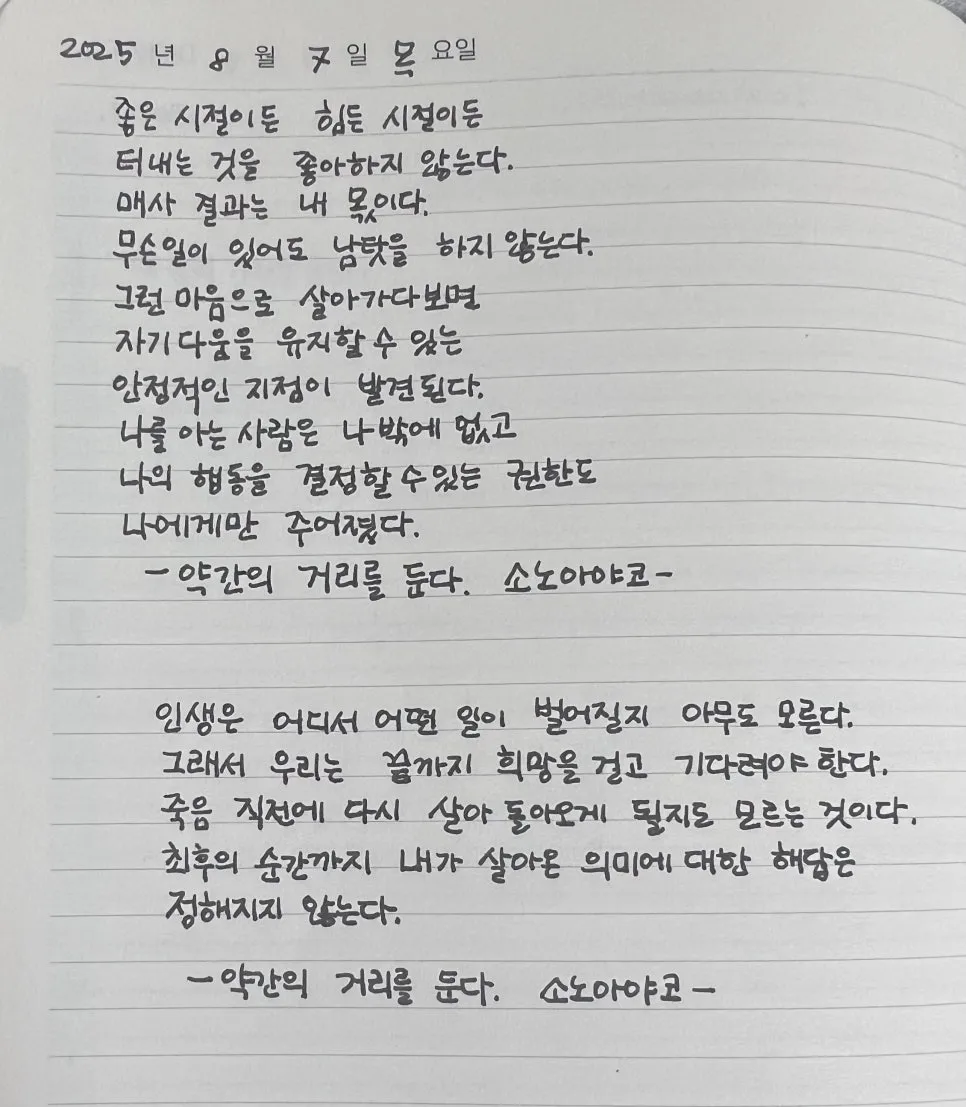 2025 년 8 월 7 일 목 요일
좋은 시절이든 힘든 시절이든
터내는 것을 좋아하지 않는다.
매사 결과는 내 몫이다.
무슨일이 있어도 남탓을 하지 않는다.
그런 마음으로 살아가다보면
자기다움을 유지할 수 있는
안정적인 지점이 발견된다.
나를 아는 사람은 나밖에 없고
나의 행동을 결정할 수 있는 권한도
나에게만 주어졌다.
- 약간의 거리를 둔다. 소노아야코 -
인생은 어디서 어떤 일이 벌어질지 아무도 모른다.
그래서 우리는 끝까지 희망을 걸고 기다려야 한다.
죽음 직전에 다시 살아 돌아오게 될지도 모르는 것이다.
최후의 순간까지 내가 살아온 의미에 대한 해답은
정해지지 않는다.
- 약간의 거리를 둔다. 소노아야코 -